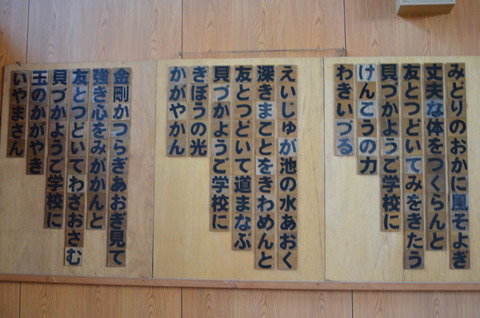 みどりのおかに風そよぎ
丈夫な体をつくらんと
友とつどいてみをきたう
貝づかようご学校に
けんこうの力
わきいづる
えいじゅが池の水あおく
深きまことをきわめんと
友とつどいて道まなぶ
貝づかようご学校に
きぼうの光
かがやかん
金剛かつらぎあおぎ見て
強き心をみがかんと
友とつどいてわざおさむ
貝づかようご学校に
玉のかがやき
いやまさん